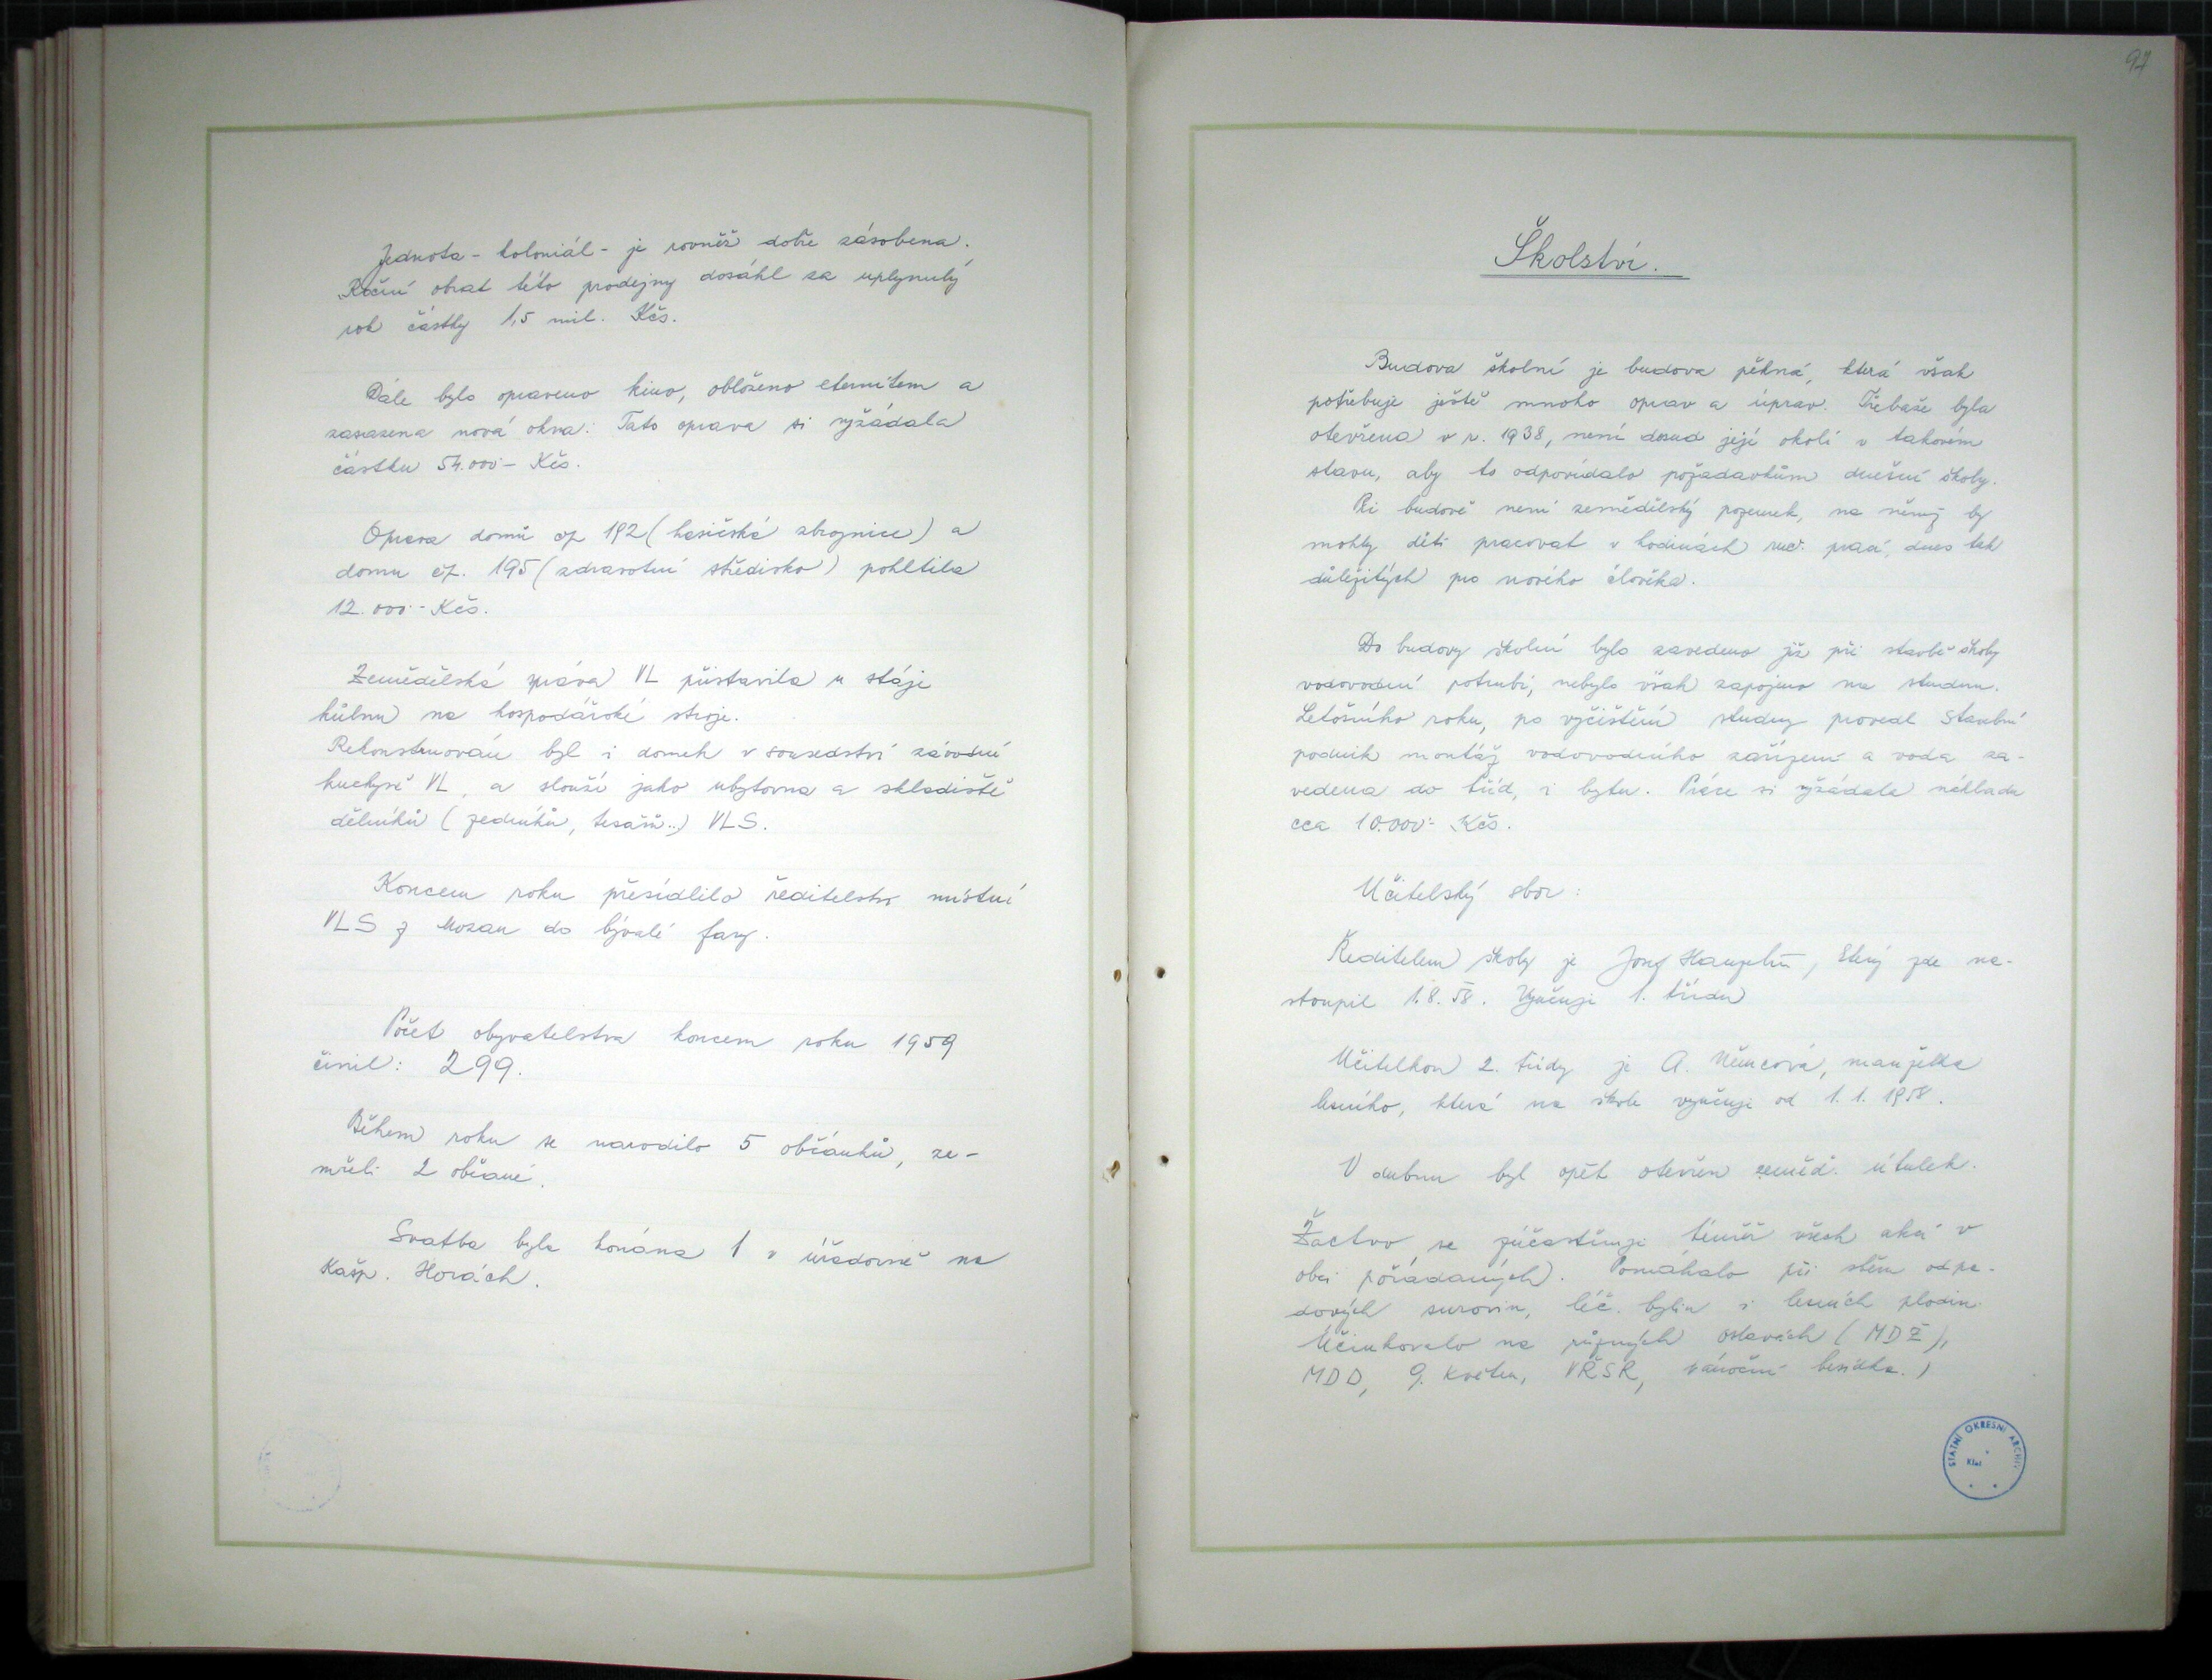 Jednota - koloniál - je rovněž dobře zásobena.
Roční obrat této prodejny dosáhl za uplynulý
rok částky 1,5 mil. Kčs.
Dále bylo opraveno kino, obloženo eternitem a
zasazena nová okna. Tato oprava si vyžádala
částku 54.000 - Kčs.
Oprava domů čp 192 (hasičská zbrojnice) a
domu čp. 195 (zdravotní středisko) pohltila
12.000 - Kčs.
Zemědělská správa VL přistavila u stáje
kůlnu na hospodářské stroje.
Rekonstruován byl i domek v sousedství závodní
kuchyně VL, a slouží jako ubytovna a skladiště
dělníků (zedníků, tesařů..) VLS.
Koncem roku přesídlilo ředitelstv místní
VLS z do bývalé fary.
Počet obyvatelstva koncem roku 1959
činil: 299.
Během roku se narodilo 5 občánků, ze-
mřeli 2 občané.
Svatba byla konána 1 v úřadovně na
Kašp. Horách.
97
Školství.
Budova školní je budova pěkná, která však
potřebuje ještě mnoho oprav a úprav. Třebaže byla
otevřena v r. 1938, není dosud její okolí v takovém
stavu, aby to odpovídalo požadavkům dnešní školy.
Při budově není zemědělský pozemek, na němž by
mohly děti pracovat v hodinách ruč. prací, dnes tak
důležitých pro nového člověka.
Do budovy školní bylo zavedeno již při stavbě školy
vodovodní potrubí, nebylo však zapojeno na studnu.
Letošního roku, po vyčištění studny provedl Stavební
podnik montáž vodovodního zařízení a voda za-
vedena do tříd, i bytu. Práce si vyžádala nákladu
cca 10.000 - Kčs.
Učitelský sbor:
Ředitelem školy je Josef, který zde na-
stoupil 1.8.58. Vyučuje 1. třídu
Učitelkou 2. třídy je A. Němcová, manželka
lesního, která na škole vyučuje od 1. 1. 1958.
V dubnu byl opět otevřen zeměď. útulek.
Žactvo se zúčastňuje téměř všech akcí v
obci pořádaných. Pomáhalo při sběru odpa-
dových surovin, léč. bylin i lesních plodin.
Účinkovalo na různých oslavách (MDŽ),
MDD, 9. květen, VŘSR, vánoční besídka.)
STÁTNÍ OKRESNÍ ARCHIV
Klat